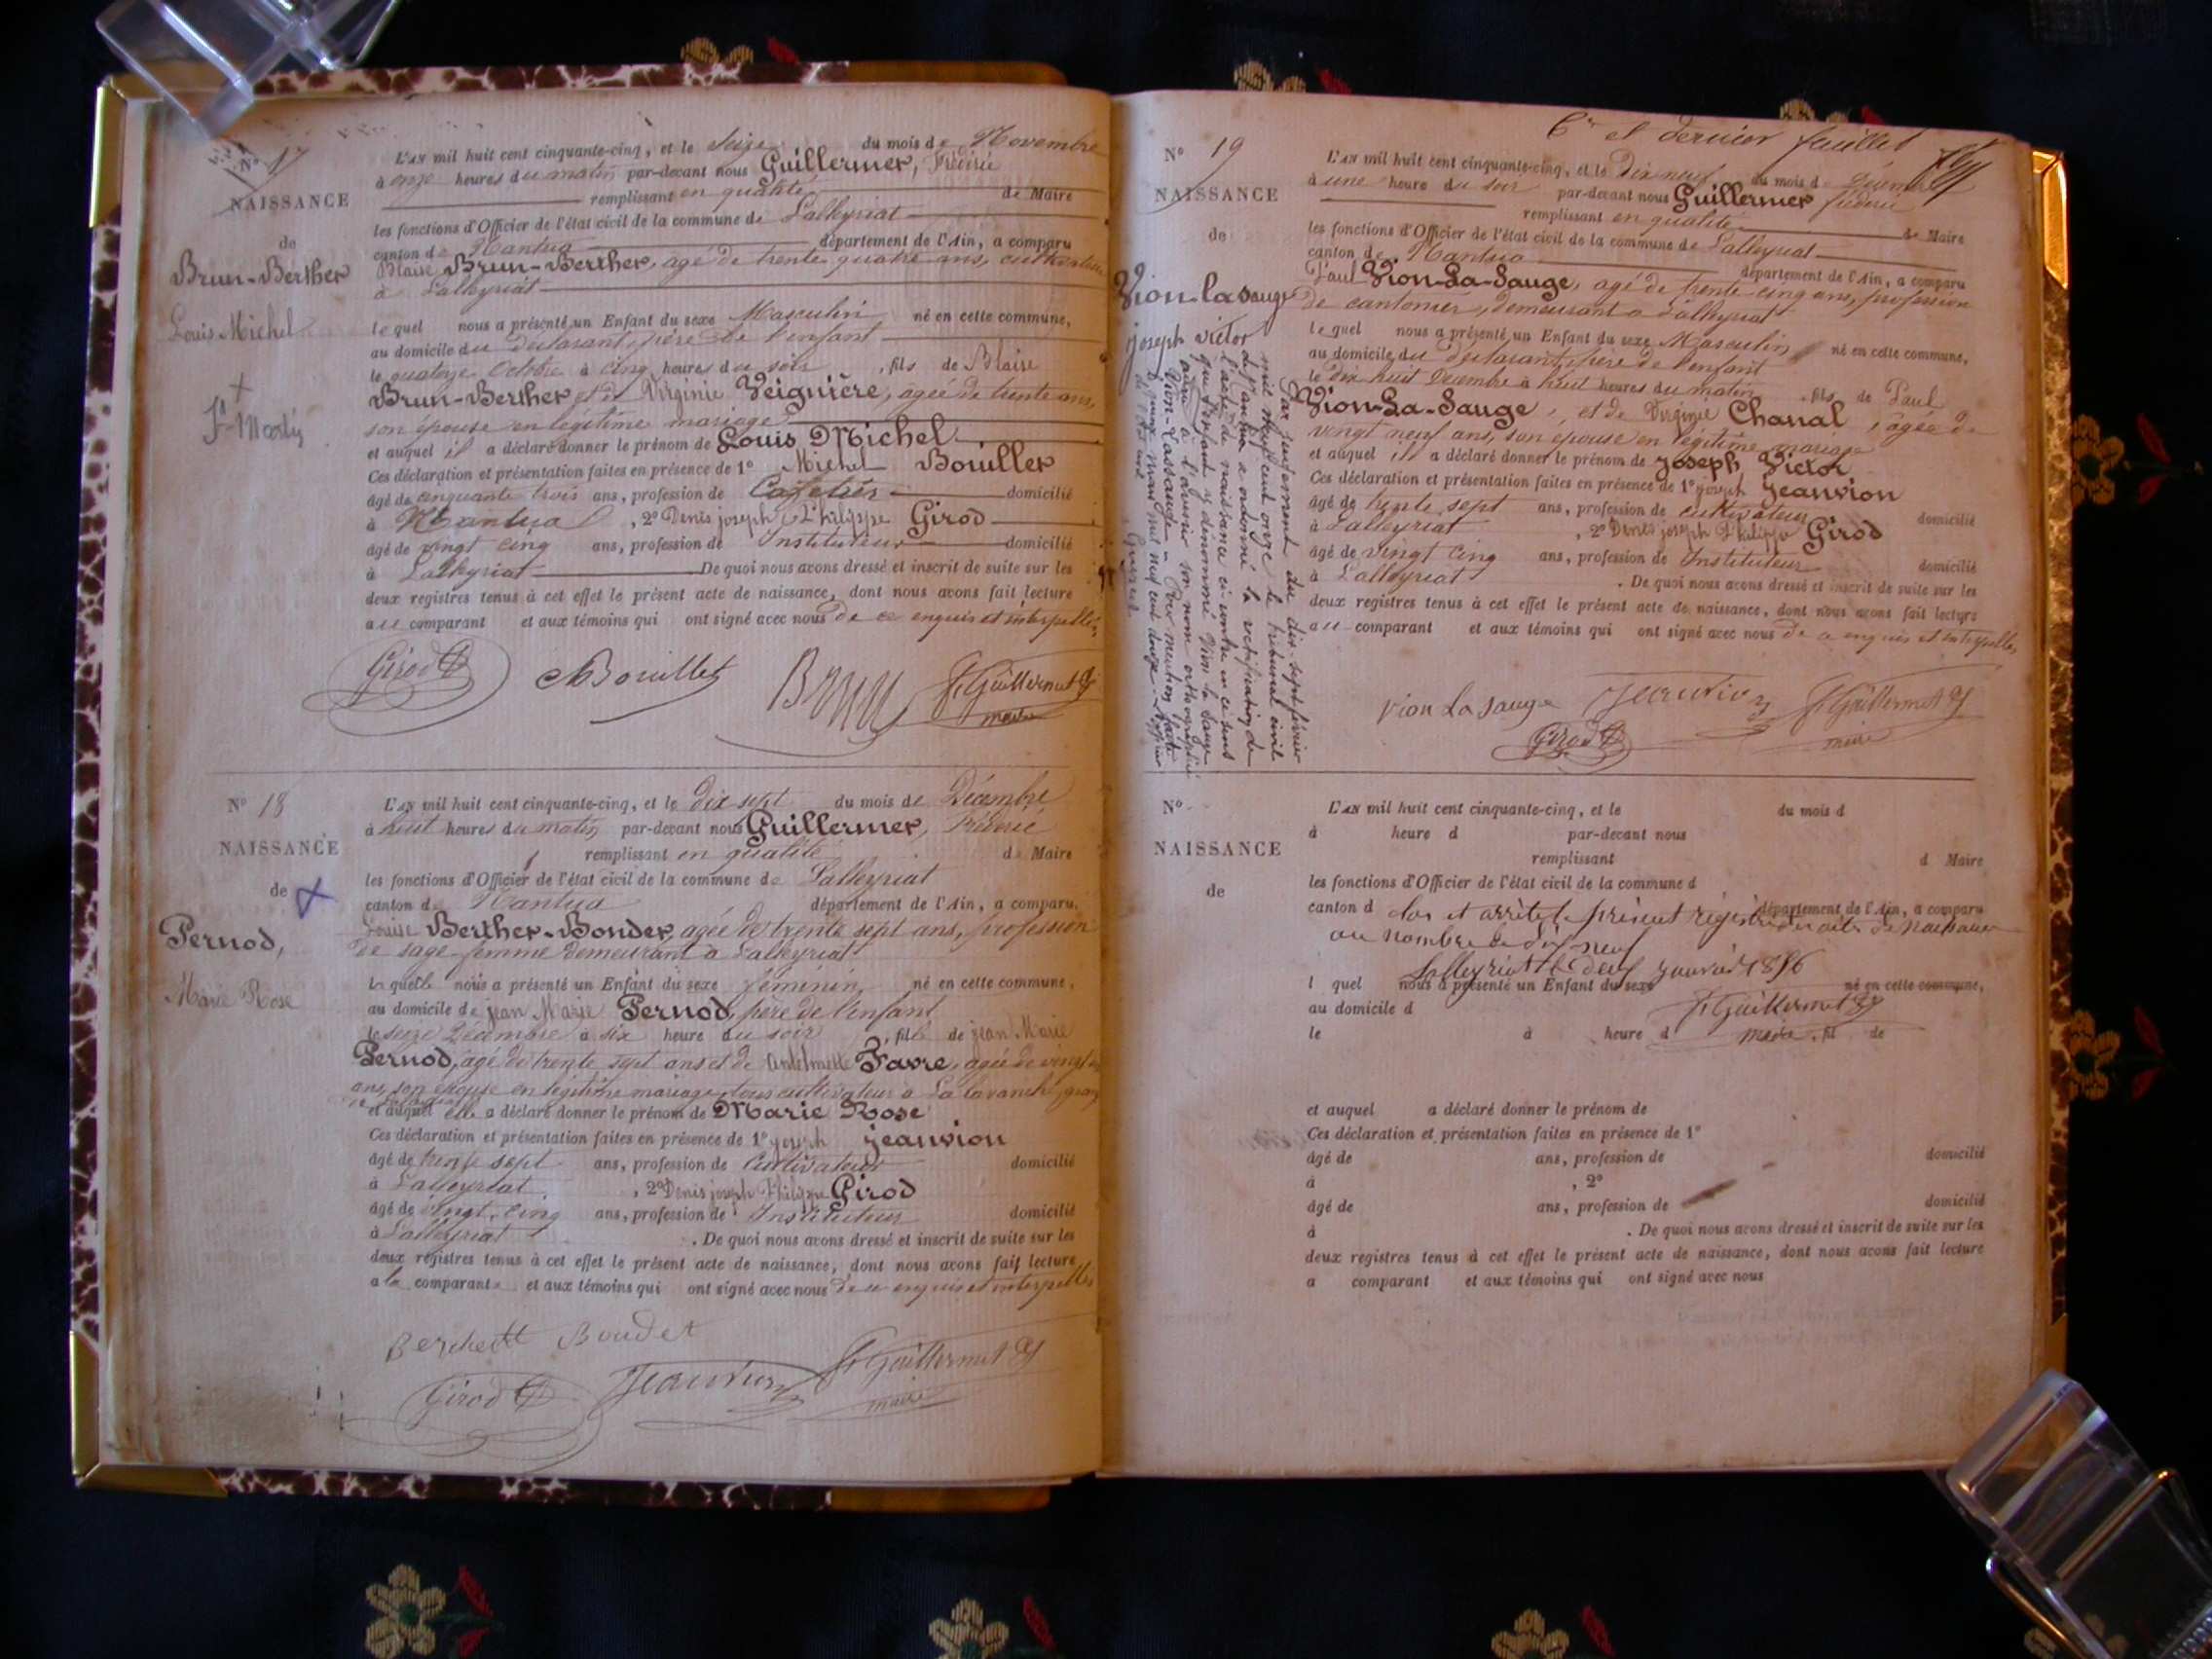 N° 17
NAISSANCE
de
Brun-Berther
Louis Michel
L'AN mil huit cent cinquante-cinq, et le Seize du mois de Novembre
à onze heures du matin par-devant nous Guillermet, Fréderic
remplissant en qualité de Maire
les fonctions d'Officier de l'état civil de la commune de Lalleyriat
canton de Nantua département de l'Ain, a comparu
Blaise Brun-Berther, agé de trente quatre ans, cultivateur
à Lalleyriat
lequel nous a présenté un Enfant du sexe Masculin né en cette commune,
au domicile du déclarant, père de l'enfant
le quatorze Octobre à cinq heures du soir, fils de Blaise
Brun-Berther et de Virginie Veignière, agée de trente ans,
son épouse en légitime mariage
et auquel il a déclaré donner le prénom de Louis Michel
Ces déclaration et présentation faites en présence de 1° Michel Bouiller
âgé de cinquante trois ans, profession de Cafetier domicilié
à Nantua, 2° Denis joseph Philippe Girod
âgé de vingt cinq ans, profession de Instituteur domicilié
à Lalleyriat De quoi nous avons dressé et inscrit de suite sur les
deux registres tenus à cet effet le présent acte de naissance, dont nous avons fait lecture
au comparant et aux témoins qui ont signé avec nous de ce enquis et interpellés
Girod Bouillet Brun F. Guillermet
maire
N° 18
NAISSANCE
de
Pernod,
Marie Rose
L'AN mil huit cent cinquante-cinq, et le dix sept du mois de Décembre
à huit heures du matin par-devant nous Guillermet, Fréderic
remplissant en qualité de Maire
les fonctions d'Officier de l'état civil de la commune de Lalleyriat
canton de Nantua département de l'Ain, a comparu
Louise Berther-Bondet, agée de trente sept ans, profession
de sage-femme demeurant à Lalleyriat
laquelle nous a présenté un Enfant du sexe féminin né en cette commune,
au domicile de jean Marie Pernod, père de l'enfant
le seize Décembre à six heure du soir, fille de jean Marie
Pernod, agé de trente sept ans et de Antelmette Favre, agée de vingt
ans, son épouse en légitime mariage, tous cultivateur à La
et auquel elle a déclaré donner le prénom de Marie Rose
Ces déclaration et présentation faites en présence de 1° joseph jeanvion
âgé de trente sept ans, profession de Cultivateur domicilié
à Lalleyriat, 2° Denis joseph Philippe Girod
âgé de vingt cinq ans, profession de Instituteur domicilié
à Lalleyriat. De quoi nous avons dressé et inscrit de suite sur les
deux registres tenus à cet effet le présent acte de naissance, dont nous avons fait lecture
a la comparante et aux témoins qui ont signé avec nous de ce enquis et interpellés
Berthet Boudet
Girod Jeanvion F. Guillermet
maire
6e et dernier feuillet
N° 19
NAISSANCE
de
Vion-la-sauge
joseph victor
Par jugement du dix-sept février
mil neuf cent onze le tribunal civil
de Nantua a ordonné la rectification de
l'acte de naissance ci-contre en ce sens
que l'enfant y dénommé Vion-la-Sauge
aura à l'avenir son nom orthographié
Vion-Lassauge. Pour mention faite
mil neuf cent douze. Le greffier
L'AN mil huit cent cinquante-cinq, et le Dix neuf du mois d Décembre
à une heure du soir par-devant nous Guillermet fréderic
remplissant en qualité de Maire
les fonctions d'Officier de l'état civil de la commune de Lalleyriat
canton de Nantua département de l'Ain, a comparu
Paul Vion-La-Sauge, agé de trente-cinq ans, profession
de cantonier, demeurant à Lalleyriat
lequel nous a présenté un Enfant du sexe Masculin né en cette commune,
au domicile du déclarant, père de l'enfant
le dix huit Décembre à huit heures du matin, fils de Paul
Vion-La-Sauge, et de Virginie Chanal, agée de
vingt neuf ans, son épouse en légitime mariage
et auquel il a déclaré donner le prénom de Joseph Victor
Ces déclaration et présentation faites en présence de 1° joseph jeanvion
âgé de trente sept ans, profession de cultivateur domicilié
à Lalleyriat, 2° Denis joseph Philippe Girod
âgé de vingt cinq ans, profession de Instituteur domicilié
à Lalleyriat. De quoi nous avons dressé et inscrit de suite sur les
deux registres tenus à cet effet le présent acte de naissance, dont nous avons fait lecture
au comparant et aux témoins qui ont signé avec nous de ce enquis et interpellés
Vion La Sauge Jeanvion F. Guillermet
Girod maire
N°
NAISSANCE
de
L'AN mil huit cent cinquante-cinq, et le du mois d
à heure d par-devant nous
remplissant d Maire
les fonctions d'Officier de l'état civil de la commune d
canton d département de l'Ain, a comparu
clos et arrêté le présent registre des actes de naissance
au nombre de dix neuf
Lalleyriat le deux janvier 1856
l quel nous a présenté un Enfant du sexe né en cette commune,
au domicile d F. Guillermet
le à heure d maire, fil de
et auquel a déclaré donner le prénom de
Ces déclaration et présentation faites en présence de 1°
âgé de ans, profession de domicilié
à , 2°
âgé de ans, profession de domicilié
à . De quoi nous avons dressé et inscrit de suite sur les
deux registres tenus à cet effet le présent acte de naissance, dont nous avons fait lecture
a comparant et aux témoins qui ont signé avec nous